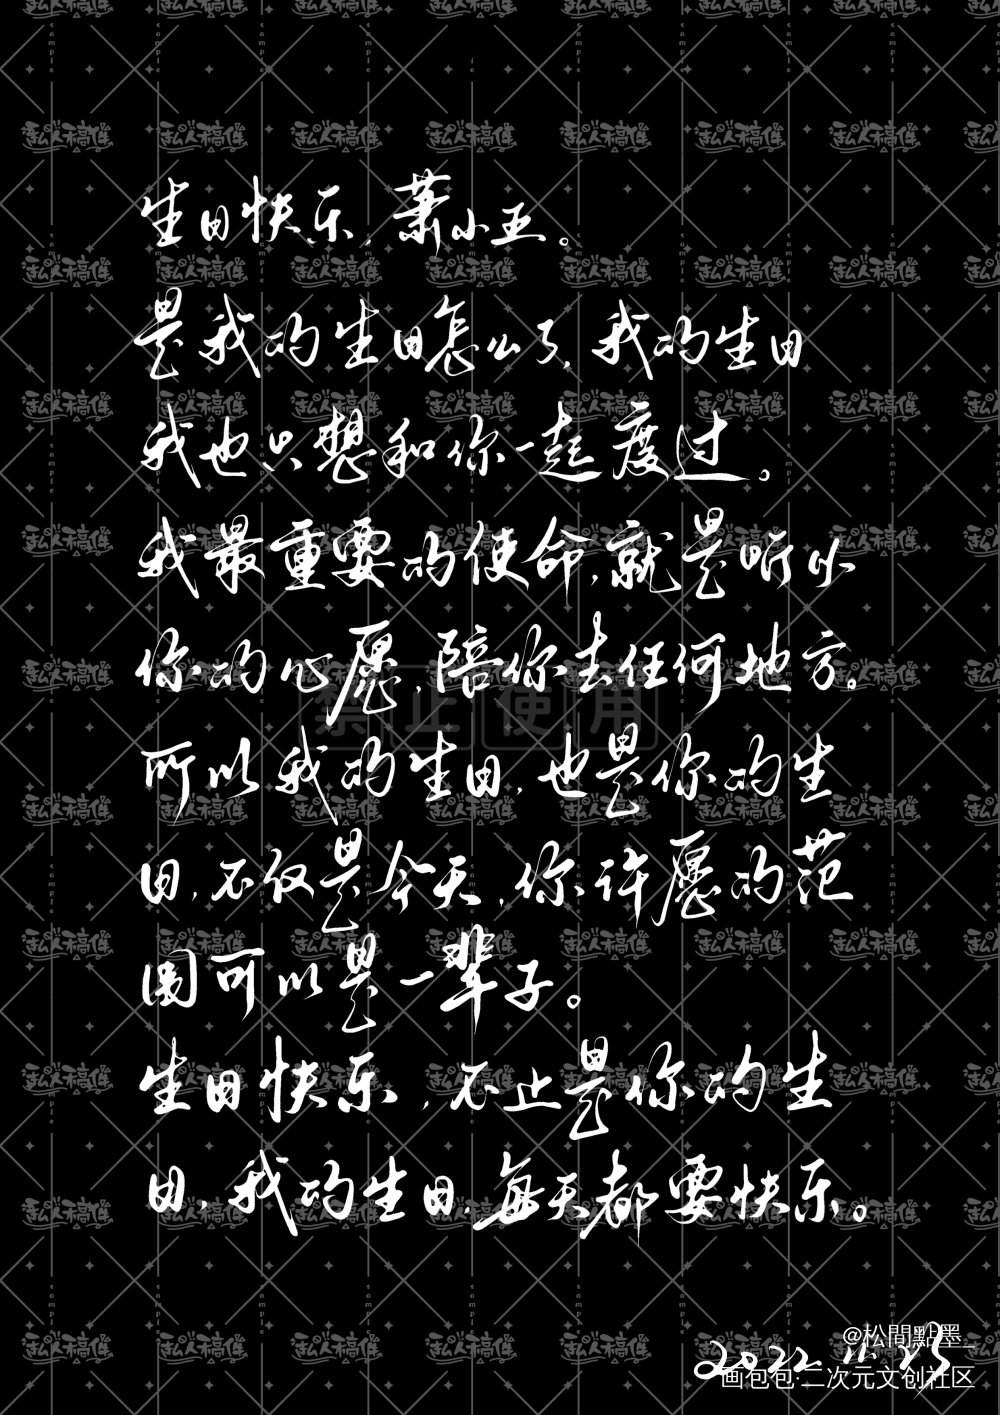 生日快乐,萧小五。
是我的生日怎么了,我的生日
我也只想和你一起度过。
我最重要的使命,就是听从
你的心愿,陪你去任何地方。
所以我的生日,也是你的生
日,不仅是今天,你许愿的范
围可以是一辈子。
生日快乐,不止是你的生
日,我的生日,每天都要快乐。
禁止使用
私人稿件
@松間點墨_
画包包:二次元文创社区